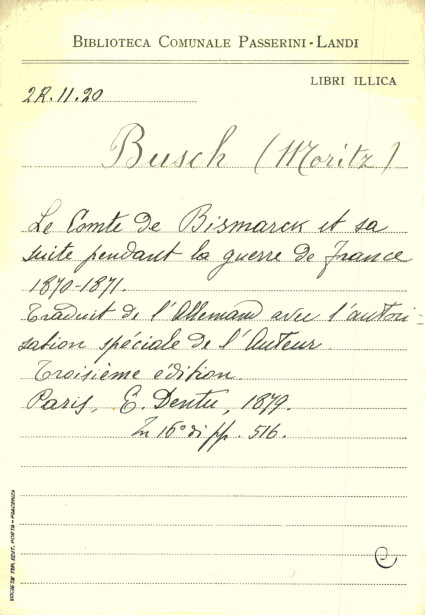 BIBLIOTECA COMUNALE PASSERINI-LANDI
LIBRI ILLICA
2R.11.20
Busch (Moritz)
Le Comte de Bismarck et sa
suite pendant la guerre de france
1870-1871.
Traduit de l'Allemand avec l'autori=
sation spéciale de l'Auteur
Troisième édition.
Paris, E. Dentu, 1879.
In 16° di pp. 516.
SOCIETÀ TIP. EDIT. PORTA - PIACENZA